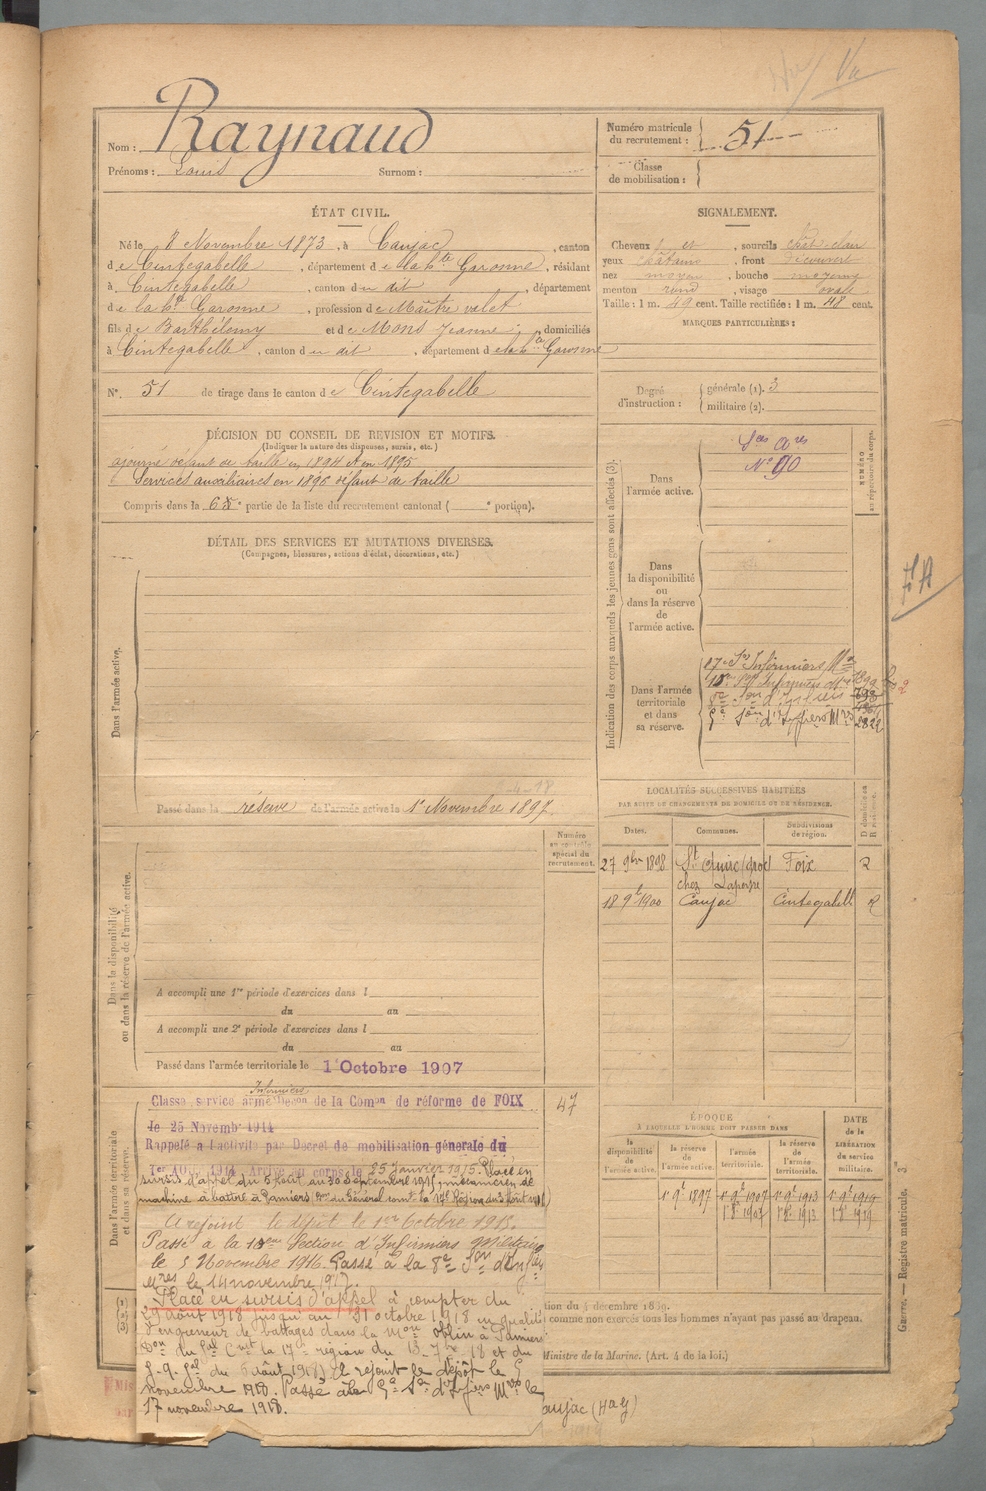 Vu
Nom : Raynaud
Prénoms : Louis Surnom :
Numéro matricule du recrutement : 51
Classe de mobilisation :
ÉTAT CIVIL.
Né le 8 Novembre 1873, à Caujac, canton
de Cintegabelle, département de la hte Garonne, résidant
à Cintegabelle, canton du dit, département
de la hte Garonne, profession de Maître valet
fils de Barthélemy et de Mons Jeanne, domiciliés
à Cintegabelle, canton du dit, département de la hte Garonne
N°. 51 de tirage dans le canton de Cintegabelle
SIGNALEMENT.
Cheveux et, sourcils chat-clair
yeux châtains, front découvert
nez moyen, bouche moyenne
menton rond, visage ovale
Taille : 1 m. 49 cent. Taille rectifiée : 1 m. 48 cent.
MARQUES PARTICULIÈRES :
Degré d'instruction : générale (1). 3
militaire (2).
DÉCISION DU CONSEIL DE REVISION ET MOTIFS.
(Indiquer la nature des dispenses, sursis, etc.)
ajourné défaut de taille en 1894 et en 1895
Services auxiliaires en 1896 défaut de taille
Compris dans la 6e partie de la liste du recrutement cantonal ( e portion).
DÉTAIL DES SERVICES ET MUTATIONS DIVERSES.
(Campagnes, blessures, actions d'éclat, décorations, etc.)
Dans l'armée active.
Passé dans la réserve de l'armée active le 1er Novembre 1897
Dans la disponibilité
ou dans la réserve de l'armée active.
Numéro
au contrôle
spécial du
recrutement.
A accompli une 1re période d'exercices dans l
du au
A accompli une 2e période d'exercices dans l
du au
Passé dans l'armée territoriale le 1er Octobre 1907
Dans l'armée territoriale
et dans sa réserve.
Infirmiers
Classé service armé Décon de la Comon de réforme de FOIX
le 25 Novembre 1914
47
Rappelé à l'activité par Décret de mobilisation générale du
1er AOUT 1914. Arrivé au corps le 25 Janvier 1915. Placé en
sursis d'appel du 6 août au 30 septembre 1915, mécanicien de
machine à battre à Pamiers,
A rejoint le dépôt le 1er Octobre 1915.
Passé à la 18eme Section d'Infirmiers Militaires
le 5 Novembre 1916. Passé à la 8e Son d'Infirs
Mres le 14 novembre 1917.
Placé en sursis d'appel à compter du
29 août 1918 jusqu'au 31 octobre 1918 en qualité
d'engreneur de battages dans la Mon Oblin à Pamiers
Don du Gal Cmt la 17e région du 13-7bre 18 et du
G.Q. Gal du 6 août 1918). A rejoint le dépôt le 5
novembre 1918. Passé à la 5e Son d'Infiers Mres le
17 novembre 1918.
Indication des corps auxquels les jeunes gens sont affectés (3).
NUMÉRO
au répertoire du corps.
Dans
l'armée active.
Sces Ares
N° 90
Dans
la disponibilité
ou
dans la réserve
de
l'armée active.
Dans l'armée
territoriale
et dans
sa réserve.
17e Son Infirmiers Mres
18e Son Infirmiers Mres 1899
8e Son d'Infiers
5e Son d'Infiers Mres 2822
FA
LOCALITÉS SUCCESSIVES HABITÉES
PAR SUITE DE CHANGEMENTS DE DOMICILE OU DE RÉSIDENCE.
Dates. Communes. Subdivisions de région. D domicile ou R résidence.
27 9bre 1898 St Quirc chez Foix R
18 9bre 1900 Caujac Cintegabelle R
ÉPOQUE
À LAQUELLE L'HOMME DOIT PASSER DANS
DATE
de la
LIBÉRATION
du service
militaire.
la disponibilité de l'armée active. la réserve de l'armée active. l'armée territoriale. la réserve de l'armée territoriale.
1er 9bre 1897 1er 9bre 1907 1er 9bre 1913 1er 9bre 1919
1er 8bre 1907 1er 8bre 1913 1er 8bre 1919
tion du 4 décembre 1889.
comme non exercés tous les hommes n'ayant pas passé au drapeau.
Ministre de la Marine. (Art. 4 de la loi.)
aujac (Hte G)
Guerre. — Registre matricule. 3e